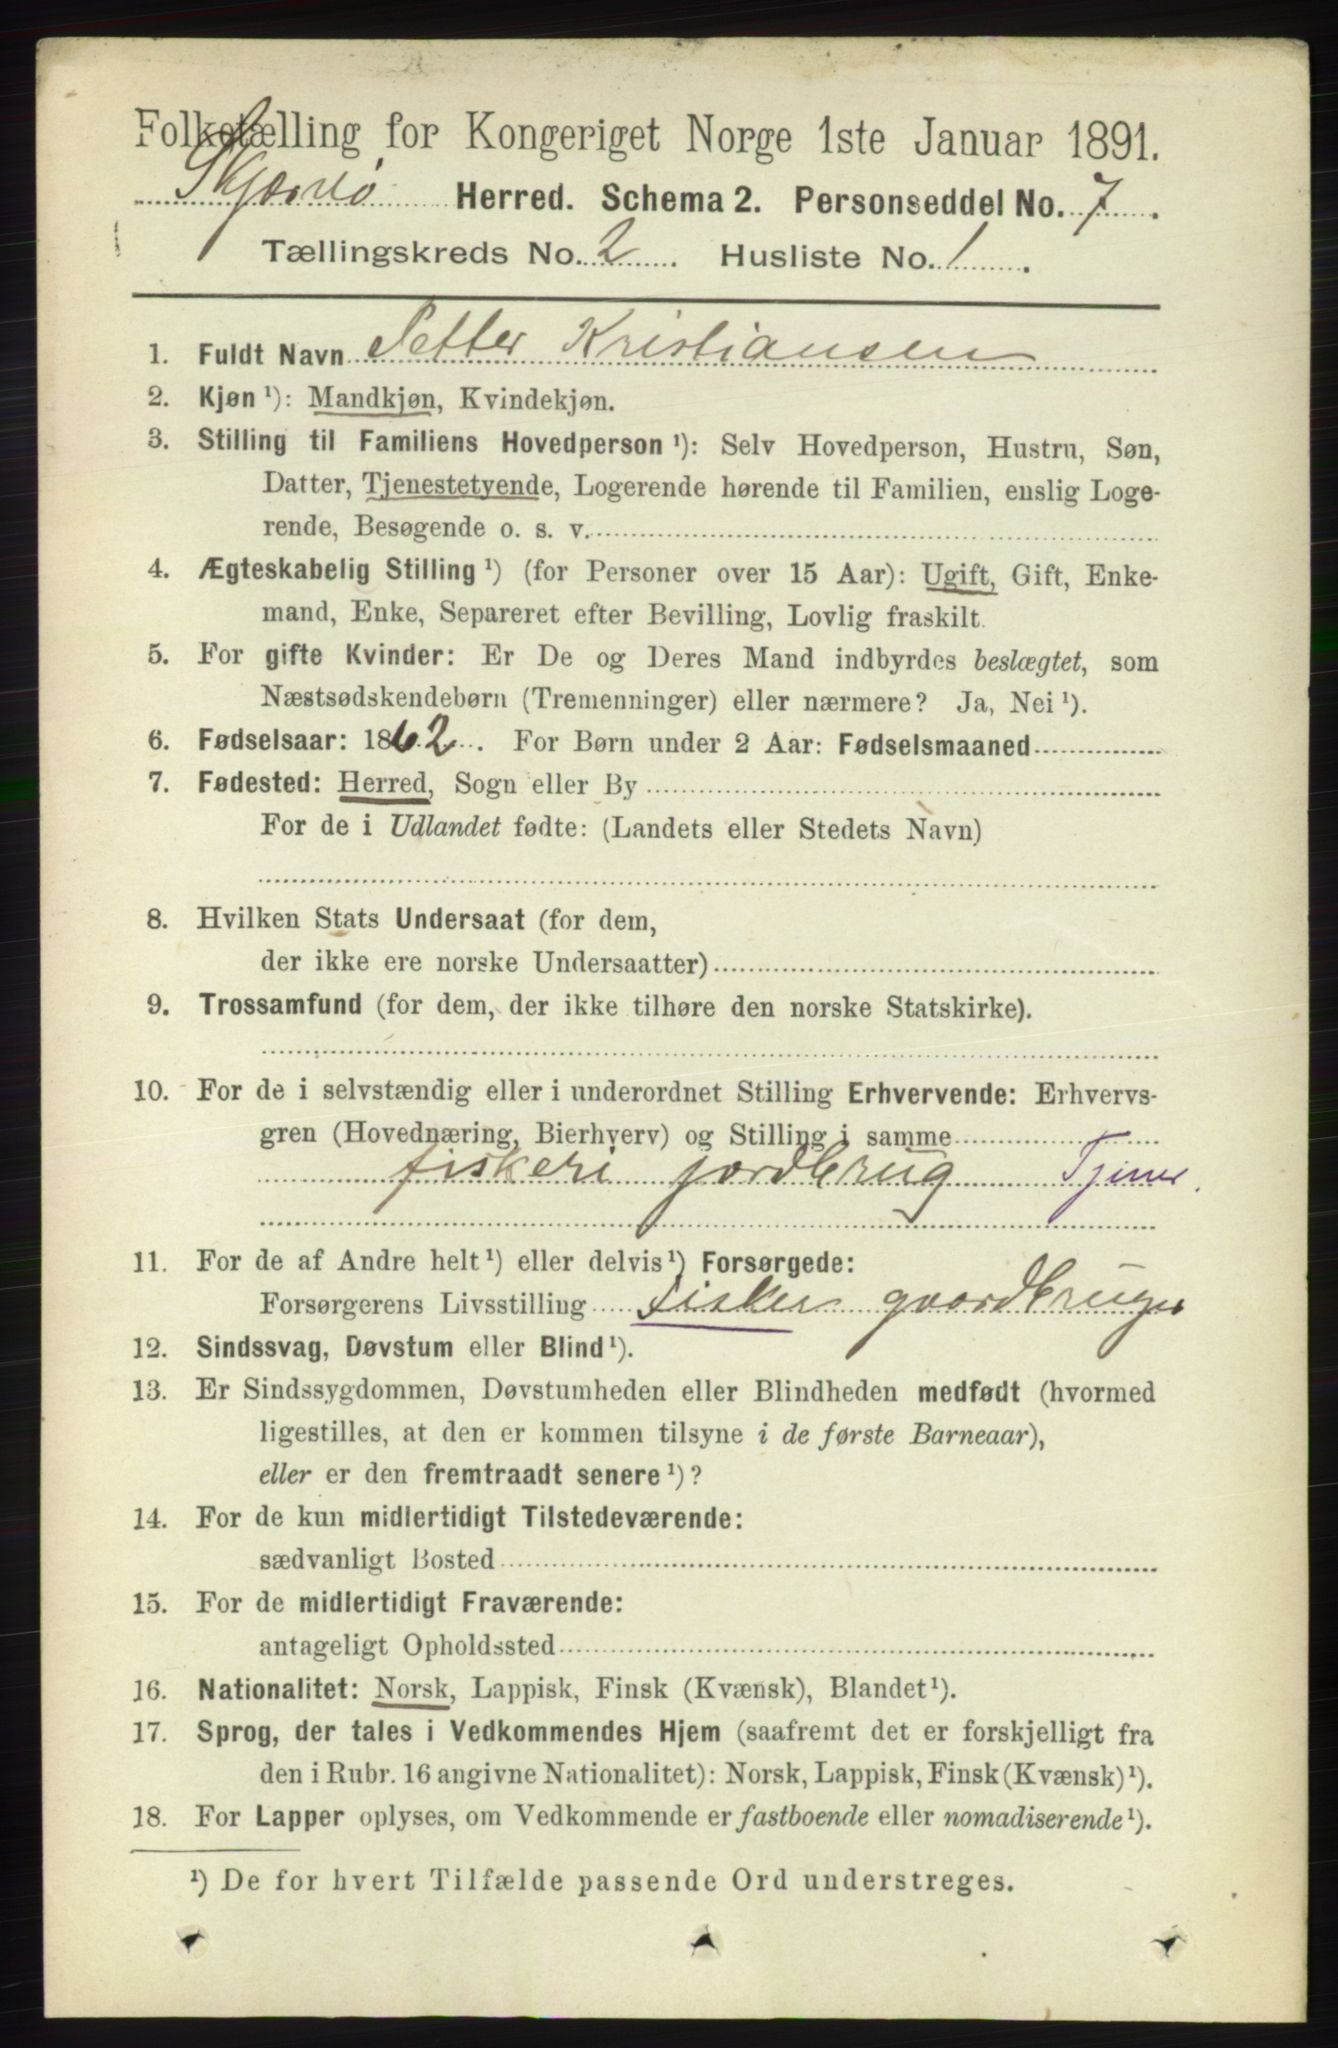 Folketælling for Kongeriget Norge 1ste Januar 1891.
Skjervø Herred. Schema 2. Personseddel No. 7.
Tællingskreds No. 2. Husliste No. 1.
1. Fuldt Navn Petter Kristiansen
2. Kjøn ¹): Mandkjøn, Kvindekjøn.
3. Stilling til Familiens Hovedperson ¹): Selv Hovedperson, Hustru, Søn,
Datter, Tjenestetyende, Logerende hørende til Familien, enslig Loge-
rende, Besøgende o. s. v.
4. Ægteskabelig Stilling ¹) (for Personer over 15 Aar): Ugift, Gift, Enke-
mand, Enke, Separeret efter Bevilling, Lovlig fraskilt.
5. For gifte Kvinder: Er De og Deres Mand indbyrdes beslægtet, som
Næstsødskendebørn (Tremenninger) eller nærmere? Ja, Nei ¹).
6. Fødselsaar: 1862. For Børn under 2 Aar: Fødselsmaaned
7. Fødested: Herred, Sogn eller By
For de i Udlandet fødte: (Landets eller Stedets Navn)
8. Hvilken Stats Undersaat (for dem,
der ikke ere norske Undersaatter)
9. Trossamfund (for dem, der ikke tilhøre den norske Statskirke).
10. For de i selvstændig eller i underordnet Stilling Erhvervende: Erhvervs-
gren (Hovednæring, Bierhverv) og Stilling i samme
fiskeri jordbrug Tjener
11. For de af Andre helt ¹) eller delvis ¹) Forsørgede:
Forsørgerens Livsstilling Fisker gaardbruger
12. Sindssvag, Døvstum eller Blind ¹).
13. Er Sindssygdommen, Døvstumheden eller Blindheden medfødt (hvormed
ligestilles, at den er kommen tilsyne i de første Barneaar),
eller er den fremtraadt senere ¹)?
14. For de kun midlertidigt Tilstedeværende:
sædvanligt Bosted
15. For de midlertidigt Fraværende:
antageligt Opholdssted
16. Nationalitet: Norsk, Lappisk, Finsk (Kvænsk), Blandet ¹).
17. Sprog, der tales i Vedkommendes Hjem (saafremt det er forskjelligt fra
den i Rubr. 16 angivne Nationalitet): Norsk, Lappisk, Finsk (Kvænsk) ¹).
18. For Lapper oplyses, om Vedkommende er fastboende eller nomadiserende ¹).
¹) De for hvert Tilfælde passende Ord understreges.